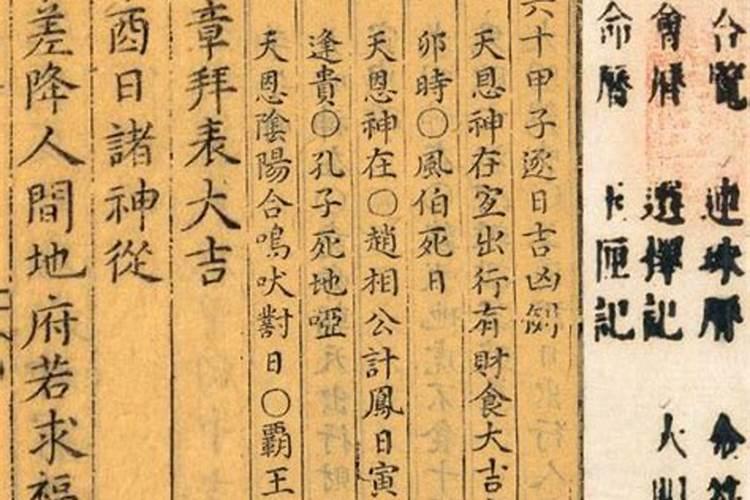 覽 連珠曆
會曆 選擇記
命曆 匣記
六十甲子逐日吉凶例
天恩神在宜出行有財食大吉
卯時〇風伯死日
天恩神在〇趙相公計鳳日寅
逢貴〇孔子死地啞
天恩陰陽合鳴吠對日〇覇王
章拜表大吉
酉日諸神從
差降人間地府若求福